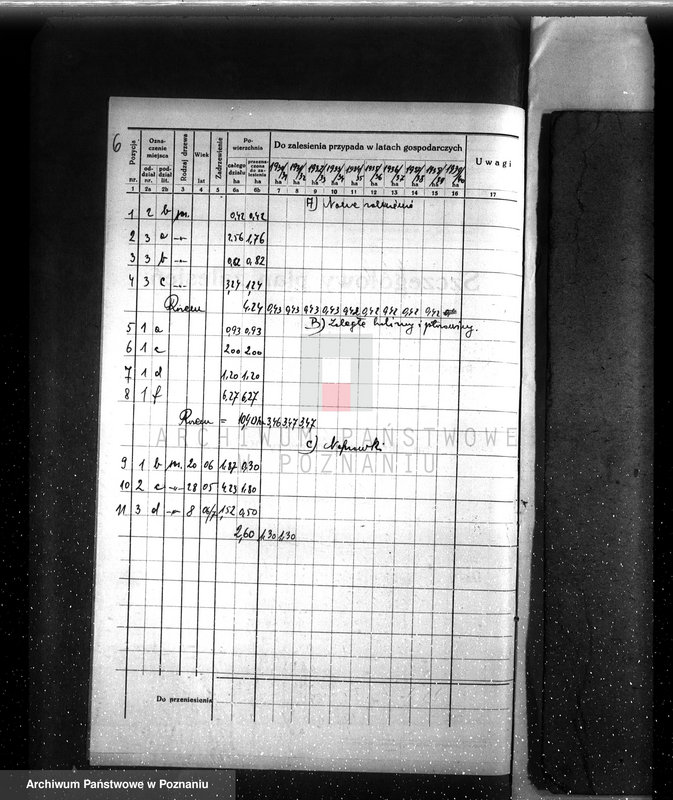 6
Pozycja nr.
Oznaczenie miejsca
oddział nr.
poddział lit.
Rodzaj drzewa
Wiek lat
Zadrzewienie
Powierzchnia
całego działu ha
przeznaczona do zalesienia ha
Do zalesienia przypada w latach gospodarczych
ha ha ha ha ha ha ha ha ha ha
Uwagi
1 2a 2b 3 4 5 6a 6b 7 8 9 10 11 12 13 14 15 16 17
A) Nowe zalesienia
1 2 b 0,42 0,42
2 3 a 2.56 1,76
3 3 b 0,82
4 3 c 3,24 1,24
Razem 4.24 0,43 0,43 0,43 0,43 0,42 0,42 0,42 0,42 0,42
B) Zaległe
5 1 a 0,93 0,93
6 1 c 2.00 2.00
7 1 d 1,20 1,20
8 1 f 6,27 6,27
Razem = 10,40 ha 3,46 3,47 3,47
C) Poprawki
9 1 b 20 06 1.87 0,30
10 2 c 28 05 4.23 1.80
11 3 d 8 1,52 0,50
2,60 1.30 1.30
Do przeniesienia
ARCHIWUM PAŃSTWOWE
W POZNANIU
Archiwum Państwowe w Poznaniu